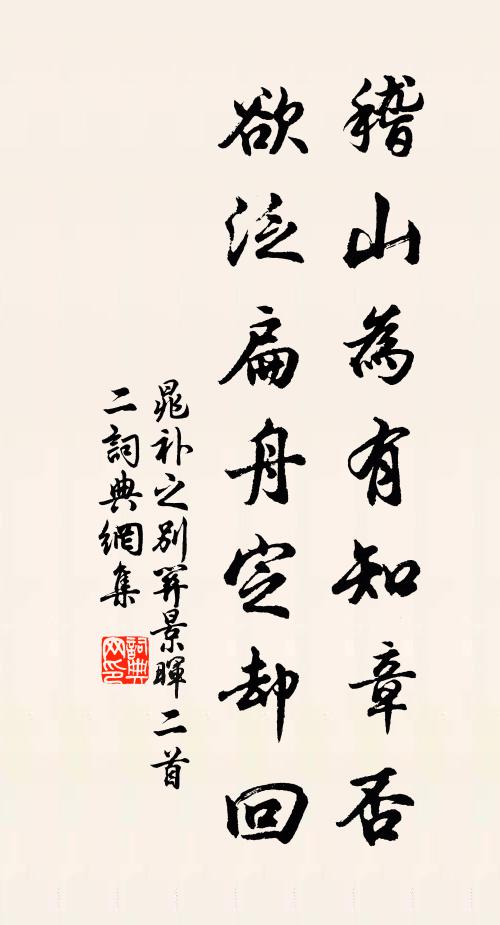 稽山為有知章否
欲泛扁舟定却回
晁补之別景暉二首
二詞典網集
詞典网印